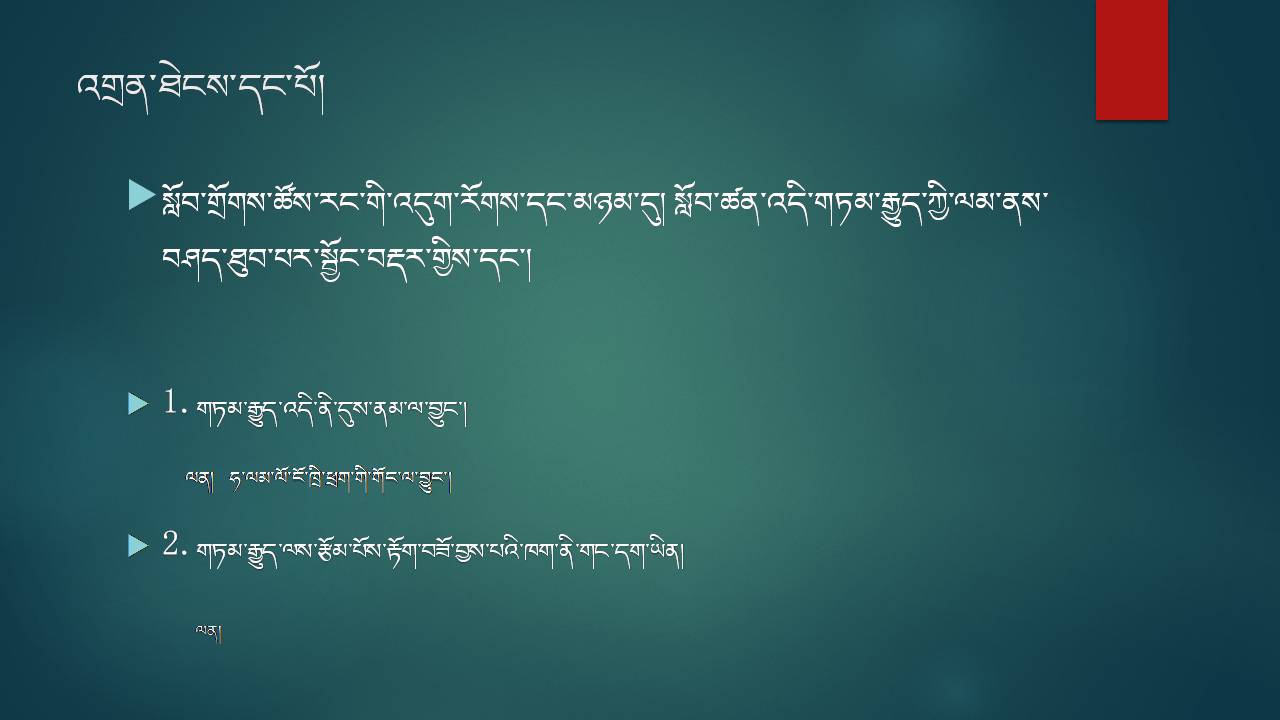 འགྲན་ཐེངས་དང་པོ།
སློབ་གྲོགས་ཚོས་རང་གི་འདུག་རོགས་དང་མཉམ་དུ། སློབ་ཚན་འདི་གཏམ་རྒྱུད་ཀྱི་ལམ་ནས་
བཤད་ཐུབ་པར་སྦྱོང་བརྡར་གྱིས་དང་།
1. གཏམ་རྒྱུད་འདི་ནི་དུས་ནམ་ལ་བྱུང་།
ལན། ཧ་ལམ་ལོ་ངོ་ཁྲི་ཕྲག་གི་གོང་ལ་བྱུང་།
2. གཏམ་རྒྱུད་ལས་རྩོམ་པོས་རྟོག་བཟོ་བྱས་པའི་ཁག་ནི་གང་དག་ཡིན།
ལན།